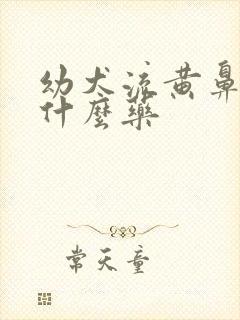 幼犬流黄鼻
什麼藥
常天童